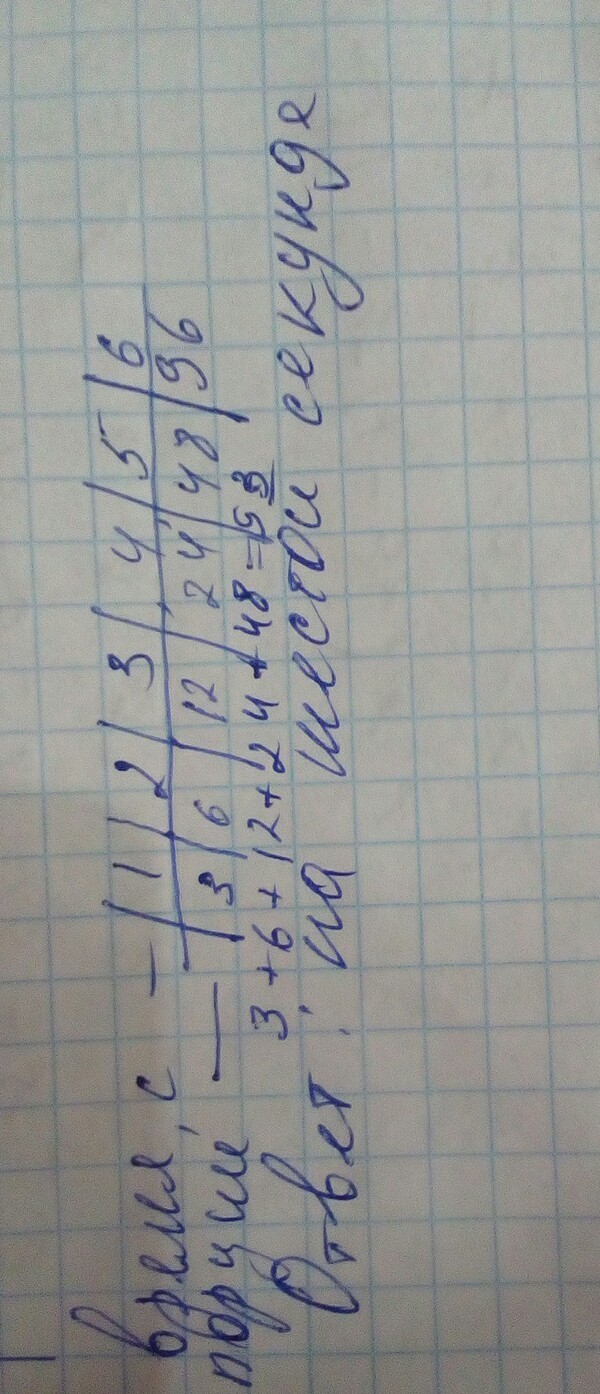 время, с – | 1 | 2 | 3 | 4 | 5 | 6
порции — | 3 | 6 | 12 | 24 | 48 | 96
3 + 6 + 12 + 24 + 48 = 93
Ответ: на шестой секунде